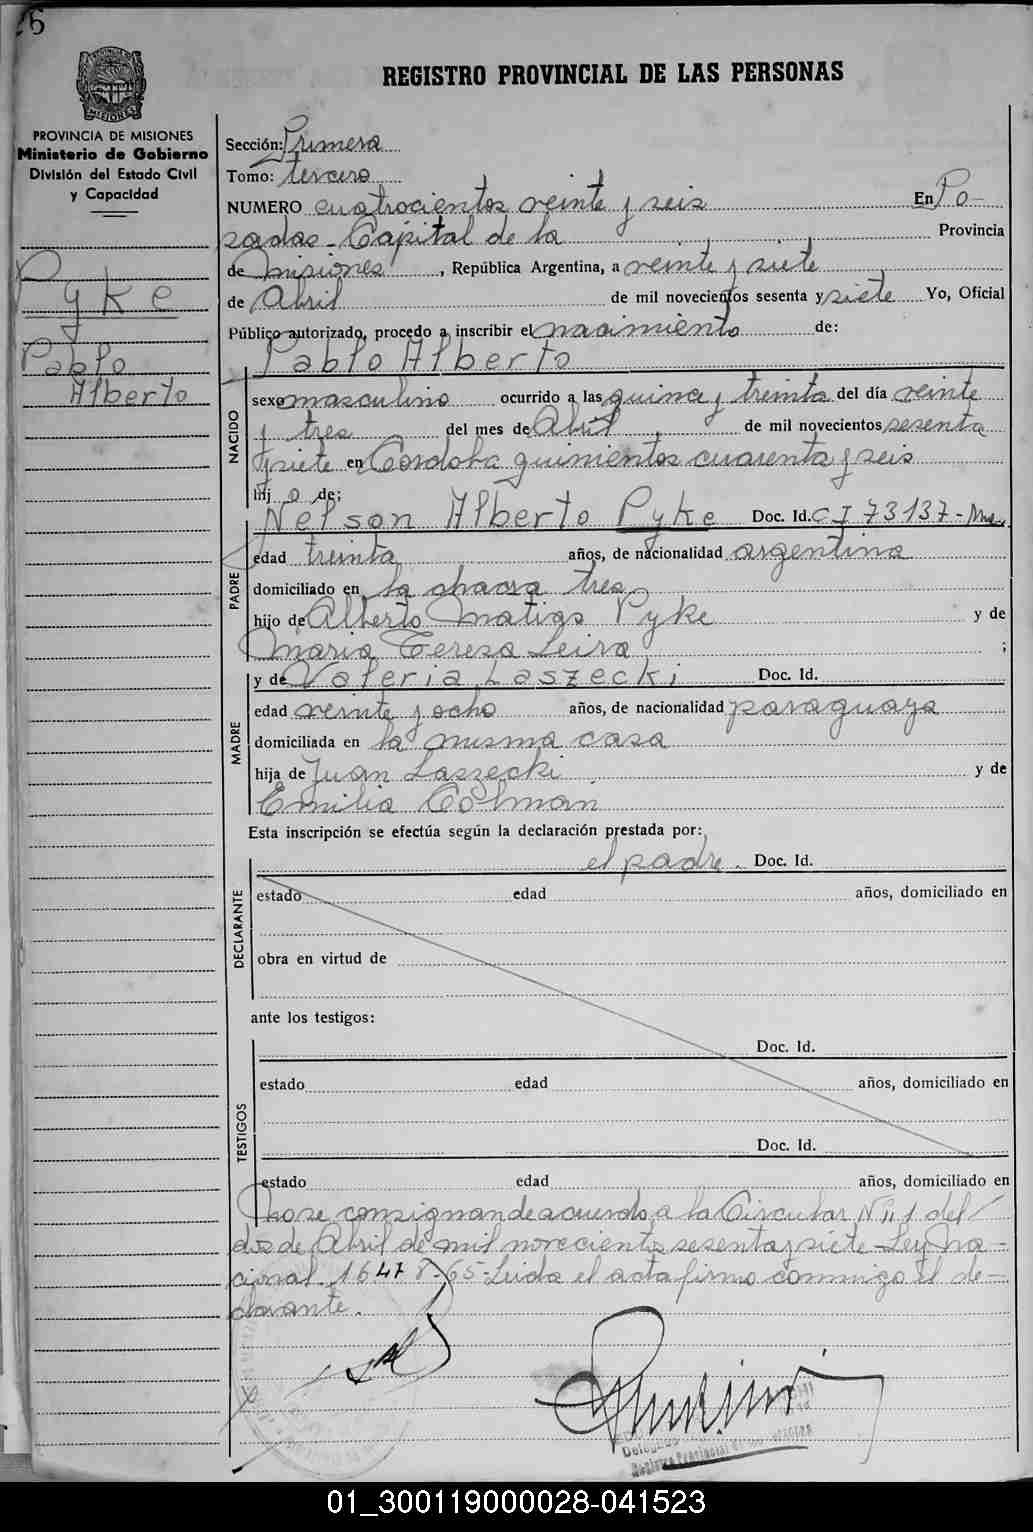 26
REGISTRO PROVINCIAL DE LAS PERSONAS
PROVINCIA DE MISIONES
Ministerio de Gobierno
División del Estado Civil
y Capacidad
Pyke
Pablo
Alberto
Sección: Primera
Tomo: tercero
NUMERO cuatrocientos veinte y seis En Po-
sadas - Capital de la Provincia
de Misiones, República Argentina, a veinte y siete
de Abril de mil novecientos sesenta y siete Yo, Oficial
Público autorizado, procedo a inscribir el nacimiento de:
Pablo Alberto
NACIDO
sexo masculino ocurrido a las quince y treinta del día veinte
y tres del mes de Abril de mil novecientos sesenta
y siete en Cordoba quinientos cuarenta y seis
hij o de;
Nelson Alberto Pyke Doc. Id. C I 73137 - Mnes.
PADRE
edad treinta años, de nacionalidad argentina
domiciliado en la chacra tres
hijo de Alberto Matias Pyke y de
Maria Teresa Leiva ;
y de Valeria Laszecki Doc. Id.
MADRE
edad veinte y ocho años, de nacionalidad paraguaya
domiciliada en la misma casa
hija de Juan Laszecki y de
Emilia Colman
Esta inscripción se efectúa según la declaración prestada por:
el padre. Doc. Id.
DECLARANTE
estado edad años, domiciliado en
obra en virtud de
ante los testigos:
Doc. Id.
TESTIGOS
estado edad años, domiciliado en
Doc. Id.
estado edad años, domiciliado en
no se consignan de acuerdo a la Circular Nº 1 del
dos de Abril de mil novecientos sesenta y siete - Ley Na-
cional - 16478-65 - Leida el acta firma conmigo el de-
clarante.
Registro Provincial de las Personas
01_300119000028-041523